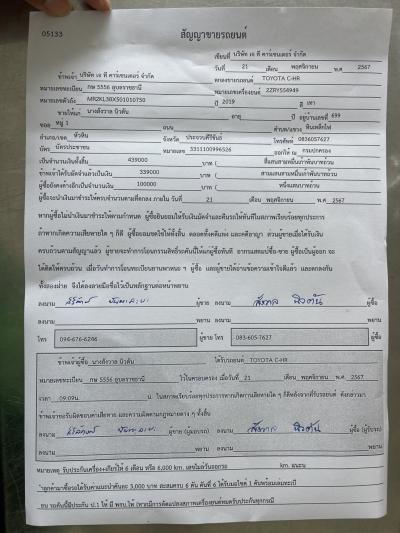 05133
สัญญาขายรถยนต์
เขียนที่ บริษัท เอ พี คาร์เซนเตอร์ จำกัด
วันที่ 21 เดือน พฤศจิกายน พ.ศ 2567
ข้าพเจ้า บริษัท เอ พี คาร์เซนเตอร์ จำกัด ตกลงขายรถยนต์ TOYOTA C-HR
หมายเลขทะเบียน กษ 5556 อุบลราชธานี หมายเลขเครื่องยนต์ 2ZRY554949
หมายเลขตัวถัง MR2KL3BX501010750 ปี 2019 สี เทา
ขายให้แก่ นางสังวาล นิวตัน อายุ ปี อยู่บ้านเลขที่ 699
ซอย หมู่ 1 ถนน ตำบล/แขวง หินเหล็กไฟ
อำเภอ/เขต หัวหิน จังหวัด ประจวบคีรีขันธ์ โทรศัพท์ 0836057627
บัตร บัตรประชาชน หมายเลข 3311100996526 ออกให้ ณ กรมปกครอง
เป็นจำนวนเงินทั้งสิ้น 439000 บาท ( สี่แสนสามหมื่นเก้าพันบาทถ้วน
ข้าพเจ้าได้รับมัดจำแล้วเป็นเงิน 339000 บาท ( สามแสนสามหมื่นเก้าพันบาทถ้วน
ผู้ซื้อยังคงค้างอีกเป็นจำนวนเงิน 100000 บาท ( หนึ่งแสนบาทถ้วน
ผู้ซื้อจะนำเงินมาชำระให้ครบจำนวนตามที่ตกลง ภายใน วันที่ 21 เดือน พฤศจิกายน พ.ศ 2567
หากผู้ซื้อไม่นำเงินมาชำระให้ตามกำหนด ผู้ซื้อยินยอมให้ริบเงินมัดจำและคืนรถให้ทันทีในสภาพเรียบร้อยทุกประการ
ถ้าหากเกิดความเสียหายใด ๆ ก็ดี ผู้ซื้อยอมชดใช้ให้ทั้งสิ้น ตลอดทั้งคดีแพ่ง และคดีอาญา ส่วนผู้ขายเมื่อได้รับเงิน
ครบถ้วนตามสัญญาแล้ว ผู้ขายจะทำการโอนกรรมสิทธิ์รถคันนี้ให้แก่ผู้ซื้อทันที
ทั้งสองฝ่าย จึงได้ลงลายมือชื่อไว้เป็นหลักฐานต่อหน้าพยาน
ลงนาม ผู้ขาย ลงนาม สังวาล นิวตัน ผู้ซื้อ
ลงนาม พยาน ลงนาม พยาน
โทร 094-676-6246 ผู้ขาย โทร 083-605-7627 ผู้ซื้อ
ข้าพเจ้าผู้ซื้อ นางสังวาล นิวตัน ได้รับรถยนต์ TOYOTA C-HR
หมายเลขทะเบียน กษ 5556 อุบลราชธานี ไว้ในครอบครอง เมื่อวันที่ 21 เดือน พฤศจิกายน พ.ศ. 2567
เวลา 09.09น. น. ในสภาพเรียบร้อยทุกประการหากเกิดความเสียหายใด ๆ
ข้าพเจ้าขอรับผิดชอบค่าเสียหาย และความผิดตามกฎหมายต่าง ๆ ทั้งสิ้น
ลงนาม ผู้ขาย (ผู้มอบรถ) ลงนาม สังวาล นิวตัน ผู้ซื้อ (ผู้รับรถ)
ลงนาม พยาน ลงนาม พยาน
หมายเหตุ รับประกันเครื่อง+เกียร์ให้ 6 เดือน หรือ 6,000 km. km.